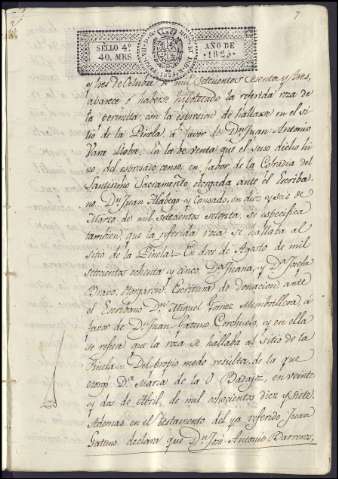 7
SELLO 4º
40. MRS
AÑO DE
1825.
y tres de Octubre de mil setecientos sesenta y tres,
aparece haberse hipotecado la referida roza de
la permuta, con la expresion de hallarse en el si
tio de la Pinela, a favor de Dn Juan Antonio
la de venta que el
del expresado censo, en favor de la Cofradia del
Santisimo Sacramento, otorgada ante el Escriba
no Dn Juan Hidalgo y en diez y seis de
Marzo de mil setecientos setenta, se especifica
tambien, que la referida roza se hallaba al
sitio de la Pinela. En dos de Agosto de mil
setecientos ochenta y cinco Da Juana, y Da Josefa
Bravo, otorgaron Escritura de donacion ante
el Escribano Dn Miguel Yañez Membrillera, a
favor de Dn Juan Gatuno y en ella
se refiere que la roza se hallaba al Sitio de la
Pinela. Del propio modo resulta de la que
otorgó Da Maria de la O Badajoz, en veinte
y dos de Abril, de mil ochocientos diez y siete
Ademas en el testamento del ya referido Juan
Gatuno declara que Dn José Antonio Barreno,